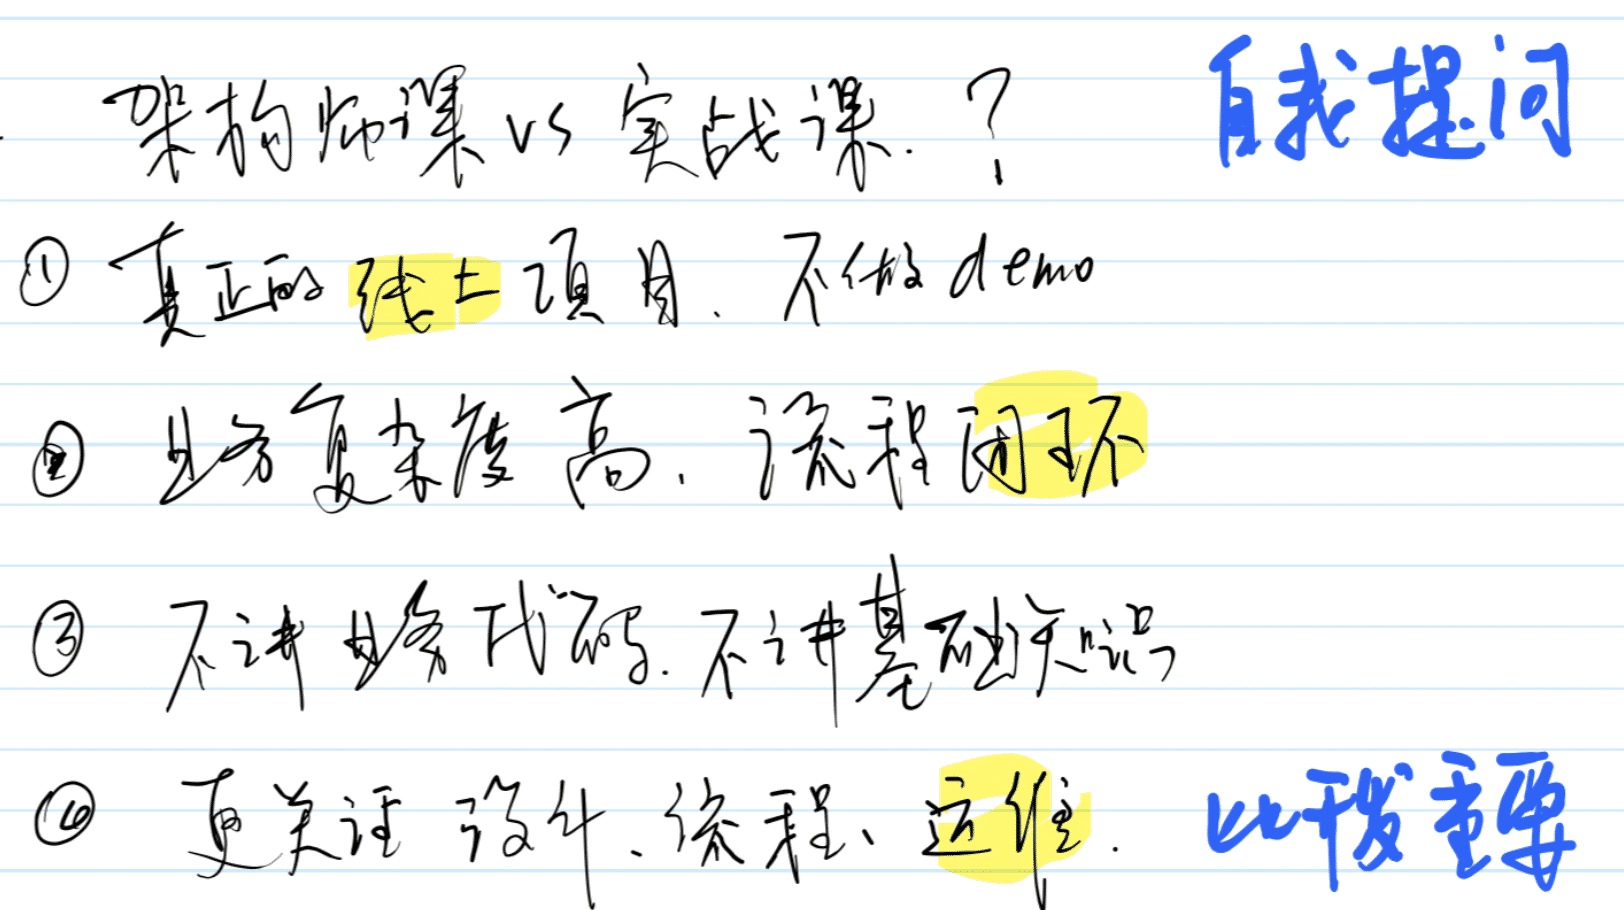 架构师课 vs 实战课.? 自我提问
① 真正的线上项目. 不做demo
② 业务复杂度高. 流程闭环
③ 不讲业务代码. 不讲基础知识
④ 更关注 设计、流程、运维. 比开发重要